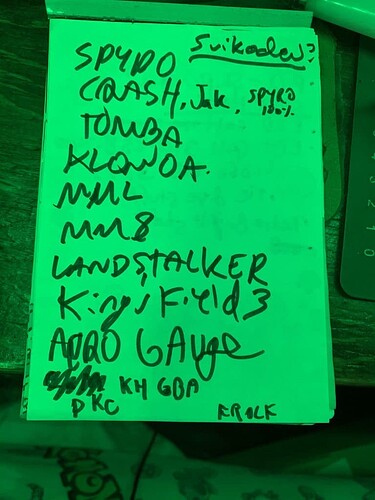 Suikoden?
SPYRO
CRASH, Jak, SPYRO 100%
TOMBA
KLONOA
MML
MM8
LANDSTALKER
King's Field 3
AERO GAuge
KH GBA
DKC